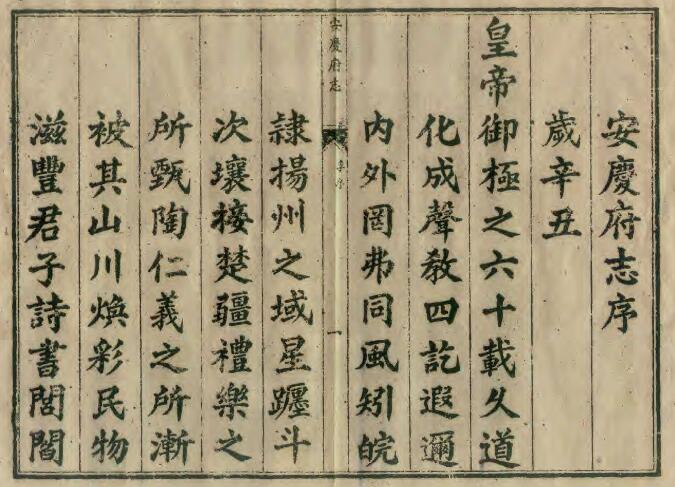 安慶府志序
歲辛丑
皇帝御極之六十載久道
化成聲教四訖遐邇
内外罔弗同風矧皖
安慶府志
序
一
隷揚州之域星躔斗
次壤接楚疆禮樂之
所甄陶仁義之所漸
被其山川煥彩民物
滋豐君子詩書閭閻